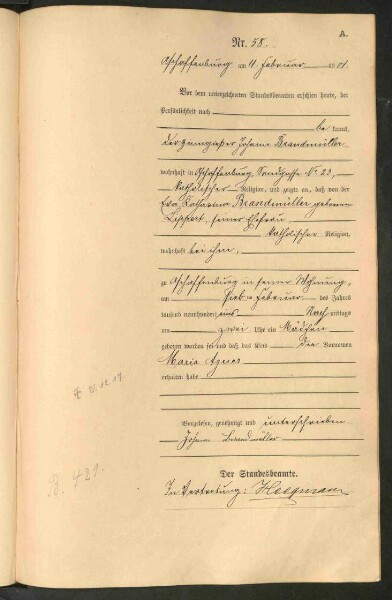 A.
Nr. 58.
Aschaffenburg am 11 Februar 1901.
Vor dem unterzeichneten Standesbeamten erschien heute, der
Persönlichkeit nach
be kannt,
der Johann Brandmüller
wohnhaft in Aschaffenburg No 23,
katholischer Religion, und zeigte an, daß von der
Eva Katharina Brandmüller geborenen
Lippert, seiner Ehefrau
katholischer Religion,
wohnhaft bei ihm,
zu Aschaffenburg in seiner Wohnung,
am Februar des Jahres
tausend neunhundert eins Nach mittags
um zwei Uhr ein Mädchen
geboren worden sei und daß das Kind die Vornamen
Maria Agnes
erhalten habe
Vorgelesen, genehmigt und unterschrieben
Johann Brandmüller
Der Standesbeamte.
In Vertretung:
B. 429.